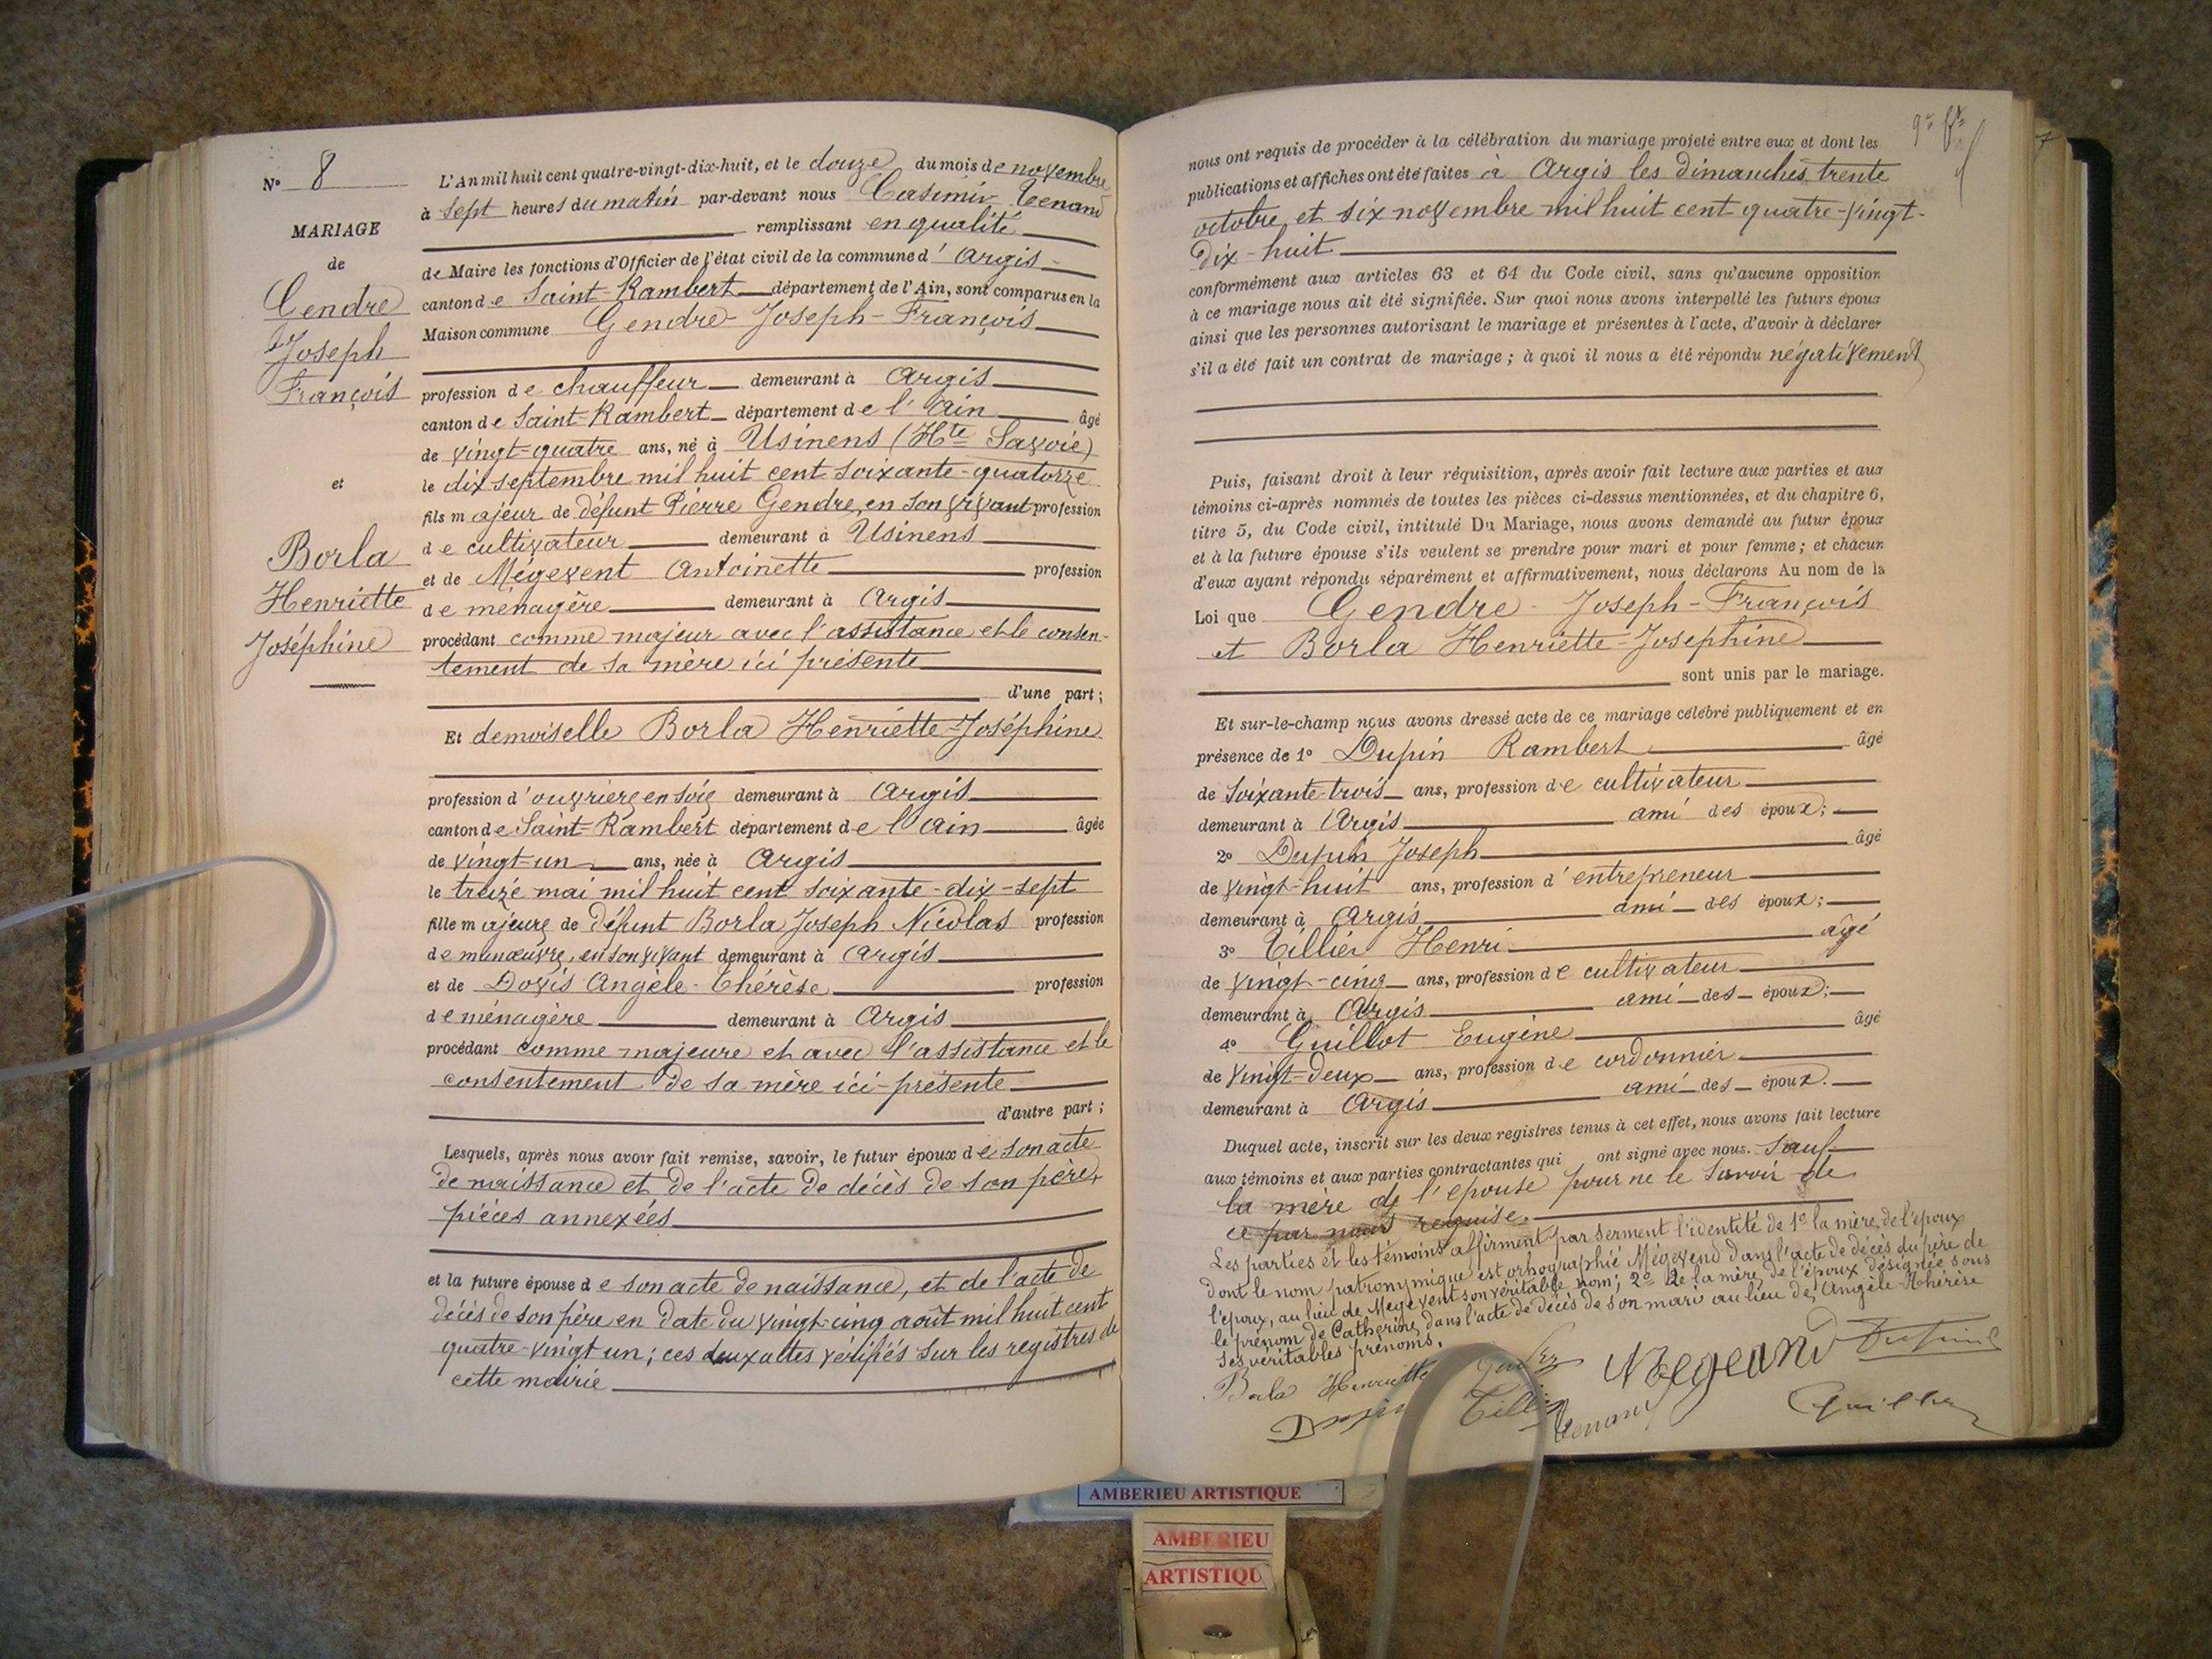 N° 8
MARIAGE
de
Gendre
Joseph
François
et
Borla
Henriette
Joséphine
L'An mil huit cent quatre-vingt-dix-huit, et le douze du mois de novembre
à sept heures du matin par-devant nous Casimir Tenand
remplissant en qualité
de Maire les fonctions d'Officier de l'état civil de la commune d' Argis
canton de Saint-Rambert département de l'Ain, sont comparus en la
Maison commune Gendre Joseph-François
profession de chauffeur demeurant à Argis
canton de Saint-Rambert département de l'Ain âgé
de vingt-quatre ans, né à Usinens (Hte Savoie)
le dix septembre mil huit cent soixante-quatorze
fils majeur de défunt Pierre Gendre, en son vivant profession
de cultivateur demeurant à Usinens
et de Mégevent Antoinette profession
de ménagère demeurant à Argis
procédant comme majeur avec l'assistance et le consen-
tement de sa mère ici présente
d'une part;
Et demoiselle Borla Henriette-Joséphine
profession d'ouvrière en soie demeurant à Argis
canton de Saint-Rambert département de l'Ain âgée
de vingt-un ans, née à Argis
le treize mai mil huit cent soixante-dix-sept
fille majeure de défunt Borla Joseph Nicolas profession
de manœuvre, en son vivant demeurant à Argis
et de Dovis Angèle-Thérèse profession
de ménagère demeurant à Argis
procédant comme majeure et avec l'assistance et le
consentement de sa mère ici-présente
d'autre part;
Lesquels, après nous avoir fait remise, savoir, le futur époux de son acte
de naissance et de l'acte de décès de son père,
pièces annexées
et la future épouse de son acte de naissance, et de l'acte de
décès de son père en date du vingt-cinq août mil huit cent
quatre-vingt un; ces deux actes vérifiés sur les registres de
cette mairie
7
nous ont requis de procéder à la célébration du mariage projeté entre eux et dont les
publications et affiches ont été faites à Argis les dimanches trente
octobre et six novembre mil huit cent quatre-vingt-
dix-huit
conformément aux articles 63 et 64 du Code civil, sans qu'aucune opposition
à ce mariage nous ait été signifiée. Sur quoi nous avons interpellé les futurs époux
ainsi que les personnes autorisant le mariage et présentes à l'acte, d'avoir à déclarer
s'il a été fait un contrat de mariage; à quoi il nous a été répondu négativement
Puis, faisant droit à leur réquisition, après avoir fait lecture aux parties et aux
témoins ci-après nommés de toutes les pièces ci-dessus mentionnées, et du chapitre 6,
titre 5, du Code civil, intitulé Du Mariage, nous avons demandé au futur époux
et à la future épouse s'ils veulent se prendre pour mari et pour femme; et chacun
d'eux ayant répondu séparément et affirmativement, nous déclarons Au nom de la
Loi que Gendre Joseph-François
et Borla Henriette-Josephine
sont unis par le mariage.
Et sur-le-champ nous avons dressé acte de ce mariage célébré publiquement et en
présence de 1° Dupin Rambert âgé
de soixante-trois ans, profession de cultivateur
demeurant à Argis ami des époux;
2° Dupin Joseph âgé
de vingt-huit ans, profession d'entrepreneur
demeurant à Argis ami des époux;
3° Tillier Henri âgé
de vingt-cinq ans, profession de cultivateur
demeurant à Argis ami des époux;
4° Guillot Eugène âgé
de vingt-deux ans, profession de cordonnier
demeurant à Argis ami des époux.
Duquel acte, inscrit sur les deux registres tenus à cet effet, nous avons fait lecture
aux témoins et aux parties contractantes qui ont signé avec nous. Sauf
la mère de l'épouse pour ne le savoir de
ce par nous requise.
Les parties et les témoins affirment par serment l'identité de 1° la mère de l'époux
dont le nom patronymique est orthographié Mégevend dans l'acte de décès du père de
l'époux, au lieu de Megevent son véritable nom; 2° de la mère de l'époux désignée sous
le prénom de Catherine dans l'acte de décès de son mari au lieu de Angèle-Thérèse
ses véritables prénoms.
Borla Henriette Megevand Dupin
Dupin Tillier Tenand Guillot
AMBERIEU ARTISTIQUE
AMBERIEU
ARTISTIQU